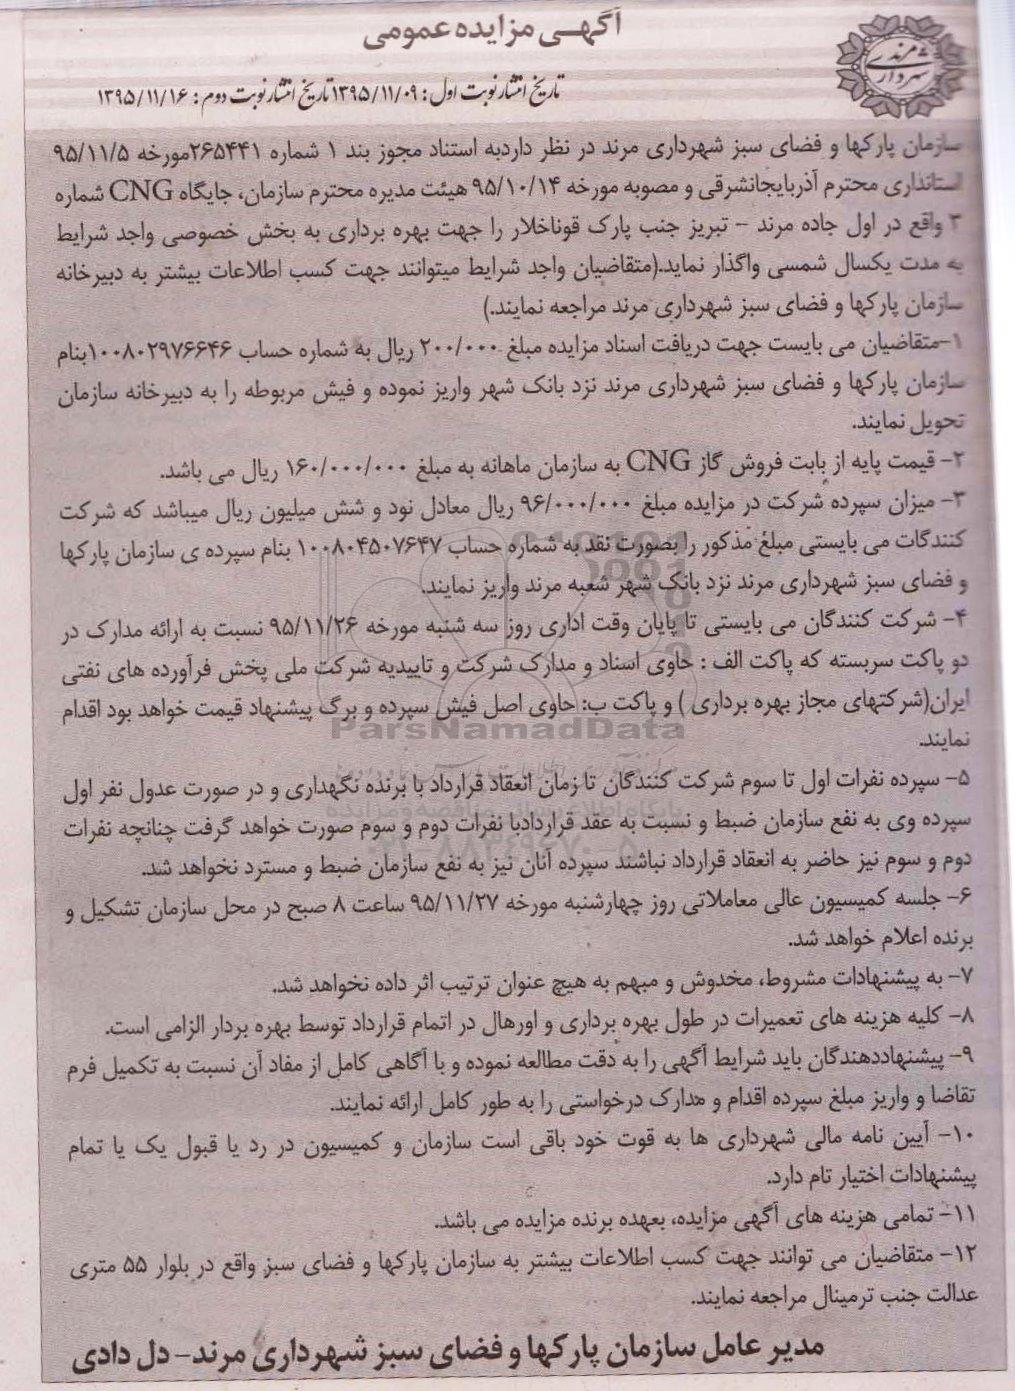 آگهی مزایده عمومی
مرند
شهرداری
تاریخ انتشار نوبت اول: ۱۳۹۵/۱۱/۰۹ تاریخ انتشار نوبت دوم: ۱۳۹۵/۱۱/۱۶
سازمان پارکها و فضای سبز شهرداری مرند در نظر داردبه استناد مجوز بند ۱ شماره ۲۶۵۴۴۱مورخه ۹۵/۱۱/۵
استانداری محترم آذربایجانشرقی و مصوبه مورخه ۹۵/۱۰/۱۴ هیئت مدیره محترم سازمان، جایگاه CNG شماره
۳ واقع در اول جاده مرند – تبریز جنب پارک قوناخلار را جهت بهره برداری به بخش خصوصی واجد شرایط
به مدت یکسال شمسی واگذار نماید.(متقاضیان واجد شرایط میتوانند جهت کسب اطلاعات بیشتر به دبیرخانه
سازمان پارکها و فضای سبز شهرداری مرند مراجعه نمایند.)
۱-متقاضیان می بایست جهت دریافت اسناد مزایده مبلغ ۲۰۰/۰۰۰ ریال به شماره حساب ۱۰۰۸۰۲۹۷۶۶۴۶بنام
سازمان پارکها و فضای سبز شهرداری مرند نزد بانک شهر واریز نموده و فیش مربوطه را به دبیرخانه سازمان
تحویل نمایند.
۲- قیمت پایه از بابت فروش گاز CNG به سازمان ماهانه به مبلغ ۱۶۰/۰۰۰/۰۰۰ ریال می باشد.
۳- میزان سپرده شرکت در مزایده مبلغ ۹۶/۰۰۰/۰۰۰ ریال معادل نود و شش میلیون ریال میباشد که شرکت
کنندگات می بایستی مبلغ مذکور را بصورت نقد به شماره حساب ۱۰۰۸۰۴۵۰۷۶۴۷ بنام سپرده ی سازمان پارکها
و فضای سبز شهرداری مرند نزد بانک شهر شعبه مرند واریز نمایند.
۴- شرکت کنندگان می بایستی تا پایان وقت اداری روز سه شنبه مورخه ۹۵/۱۱/۲۶ نسبت به ارائه مدارک در
دو پاکت سربسته که پاکت الف : حاوی اسناد و مدارک شرکت و تاییدیه شرکت ملی پخش فرآورده های نفتی
ایران(شرکتهای مجاز بهره برداری ) و پاکت ب: حاوی اصل فیش سپرده و برگ پیشنهاد قیمت خواهد بود اقدام
نمایند.
ParsNamadData
۵- سپرده نفرات اول تا سوم شرکت کنندگان تا زمان انعقاد قرارداد با برنده نگهداری و در صورت عدول نفر اول
سپرده وی به نفع سازمان ضبط و نسبت به عقد قراردادبا نفرات دوم و سوم صورت خواهد گرفت چنانچه نفرات
دوم و سوم نیز حاضر به انعقاد قرارداد نباشند سپرده آنان نیز به نفع سازمان ضبط و مسترد نخواهد شد.
۶- جلسه کمیسیون عالی معاملاتی روز چهارشنبه مورخه ۹۵/۱۱/۲۷ ساعت ۸ صبح در محل سازمان تشکیل و
برنده اعلام خواهد شد.
۷- به پیشنهادات مشروط، مخدوش و مبهم به هیچ عنوان ترتیب اثر داده نخواهد شد.
۸- کلیه هزینه های تعمیرات در طول بهره برداری و اورهال در اتمام قرارداد توسط بهره بردار الزامی است.
۹- پیشنهاددهندگان باید شرایط آگهی را به دقت مطالعه نموده و با آگاهی کامل از مفاد آن نسبت به تکمیل فرم
تقاضا و واریز مبلغ سپرده اقدام و مدارک درخواستی را به طور کامل ارائه نمایند.
۱۰- آیین نامه مالی شهرداری ها به قوت خود باقی است سازمان و کمیسیون در رد یا قبول یک یا تمام
پیشنهادات اختیار تام دارد.
۱۱- تمامی هزینه های آگهی مزایده، بعهده برنده مزایده می باشد.
۱۲- متقاضیان می توانند جهت کسب اطلاعات بیشتر به سازمان پارکها و فضای سبز واقع در بلوار ۵۵ متری
عدالت جنب ترمینال مراجعه نمایند.
مدیر عامل سازمان پارکها و فضای سبز شهرداری مرند- دل دادی